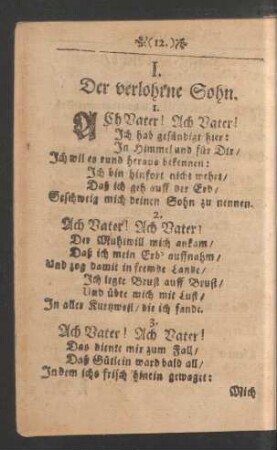 (12.)
I.
Der verlohrne Sohn.
1.
ACh Vater! Ach Vater!
Ich hab gesündigt hier:
In Himmel und für Dir/
Ich wil es rund heraus bekennen:
Ich bin hinfort nicht wehrt/
Daß ich geh auff der Erd/
Geschweig mich deinen Sohn zu nennen.
2.
Ach Vater! Ach Vater!
Der Muhtwill mich ankam/
Daß ich mein Erb' auffnahm/
Und zog damit in fremde Lande/
Ich legte Brust auff Brust/
Und übte mich mit Lust/
In aller Kurtzweil/ die ich fande.
3.
Ach Vater! Ach Vater!
Das diente mir zum Fall/
Daß Gütlein ward bald all/
Indem ichs frisch hinein gewaget:
Mich